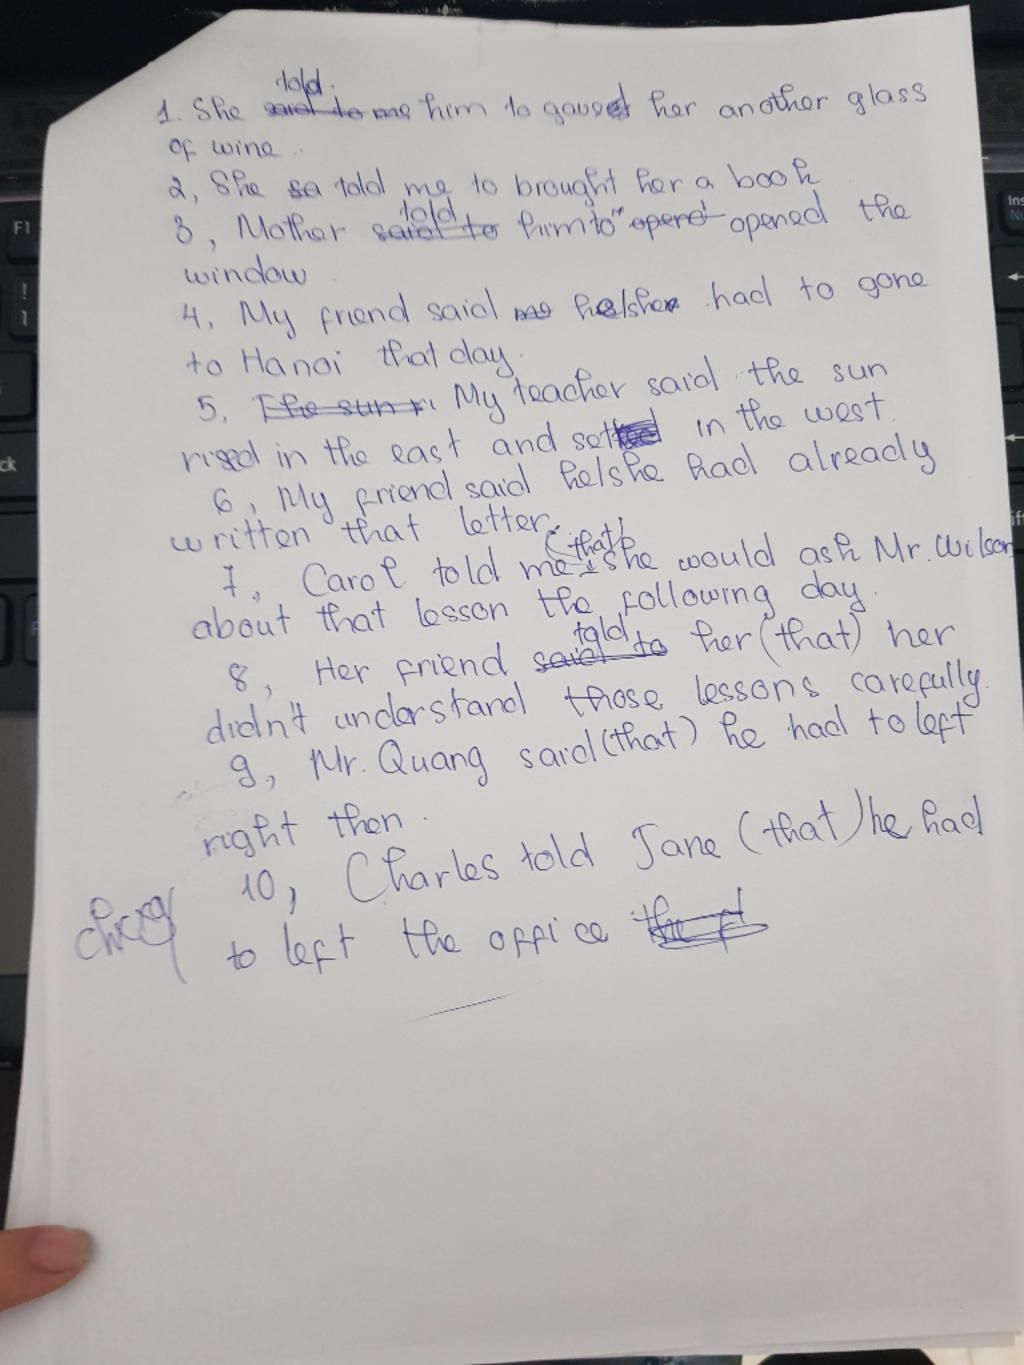 told.
1. She said to me him to gaved her another glass
of wine.
2, She sa told me to brought her a book
told
3, Mother said to him to opend opened the
window
4, My friend said me he/she had to gone
to Hanoi that day.
5. The sun ri My teacher said the sun
rised in the east and set in the west.
6, My friend said he/she had already
written that letter.
(that)
7, Carol told me she would ask Mr. Wilson
about that lesson the following day.
told
8, Her friend said to her (that) her
didn't understand those lessons carefully.
9, Mr. Quang said (that) he had to left
right then.
10, Charles told Jane (that) he had
to left the office
F1
Ins
ck